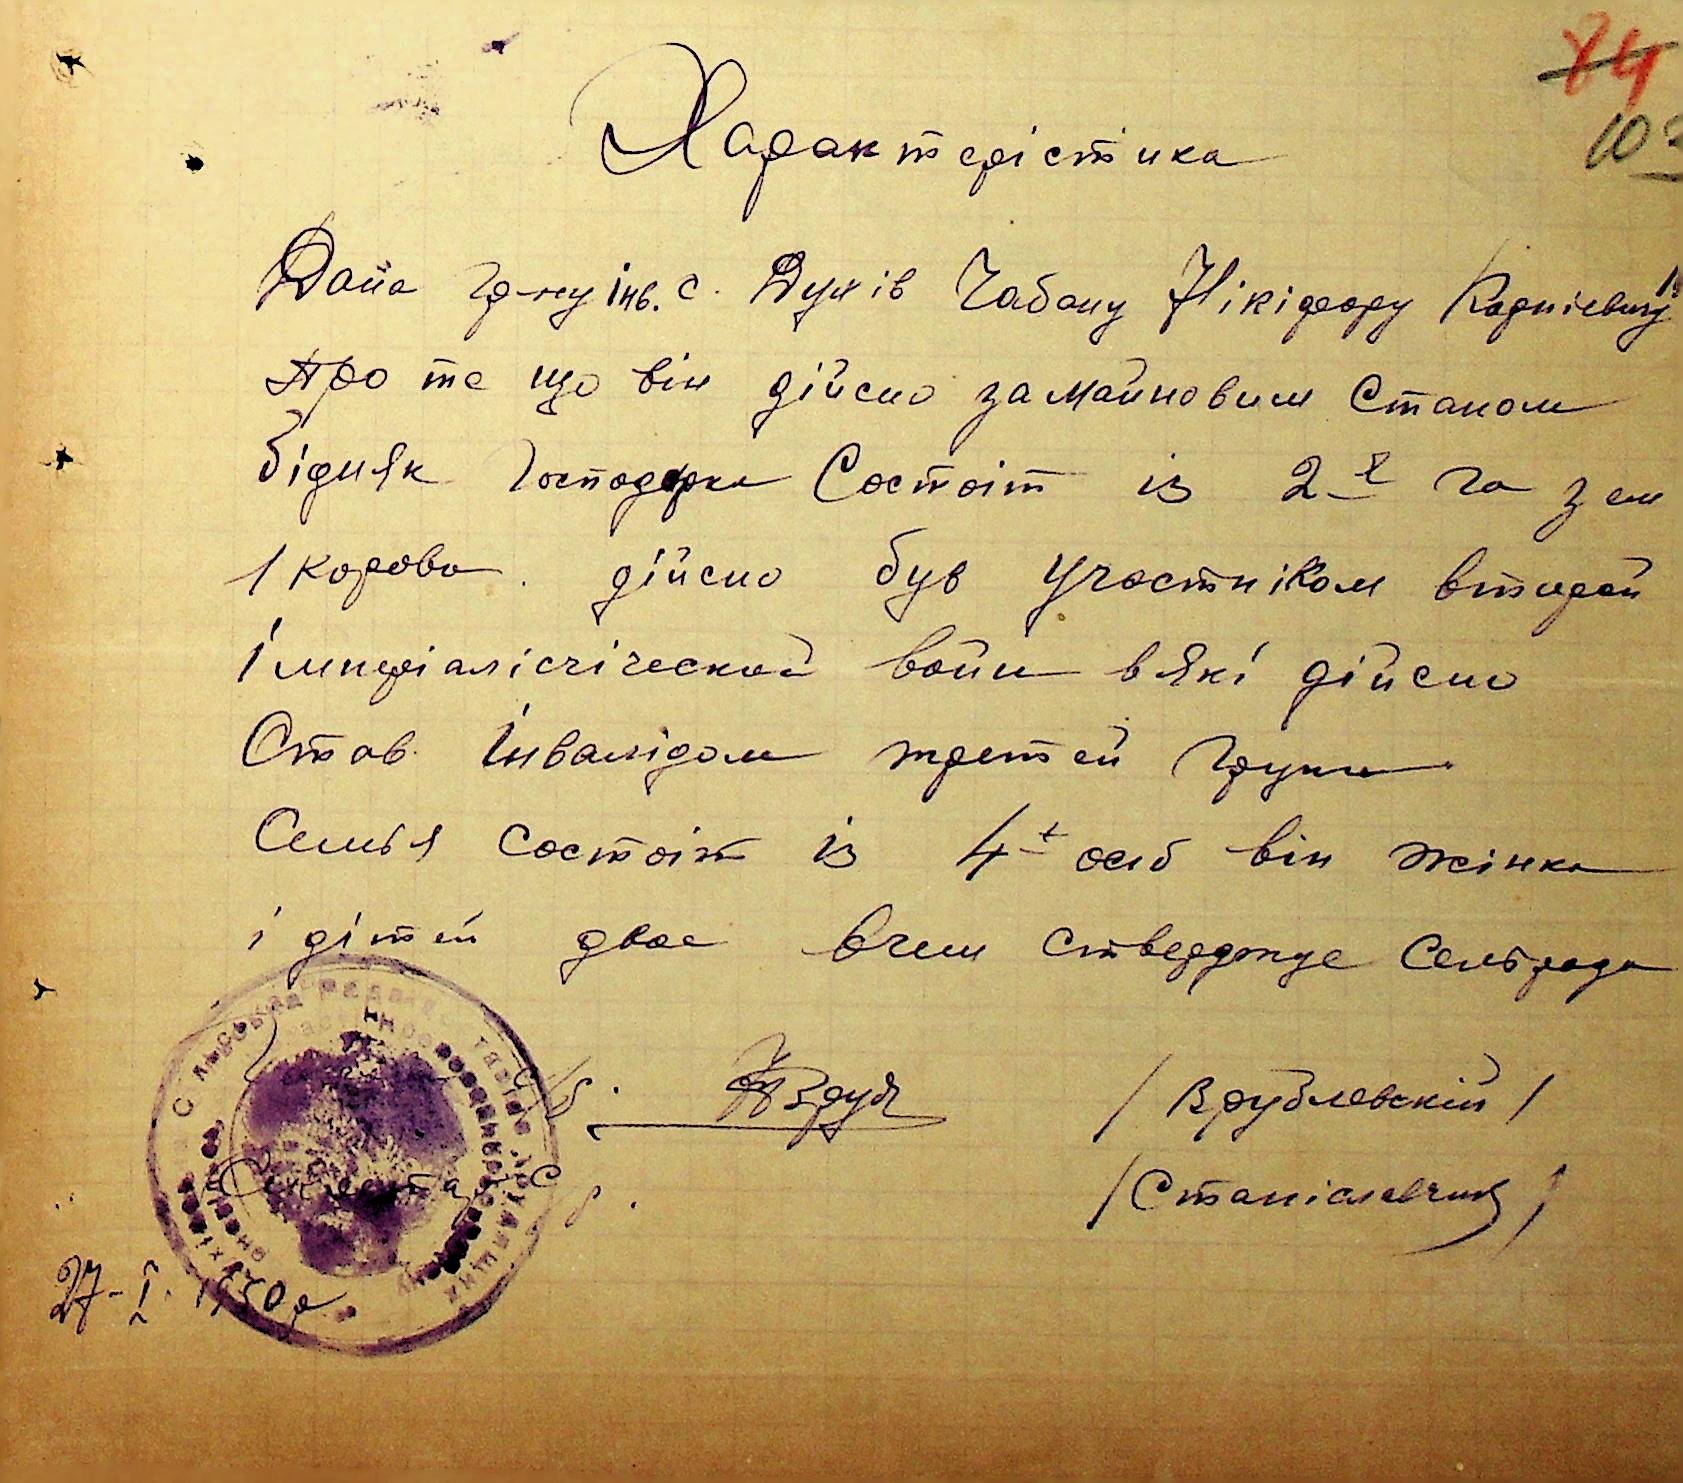 84
10
Характерістика
Дана гр-ну інв. с. Дунів Чабану Нікіфору Карпієвичу
Про те що він дійсно за майновим Станом
бідняк Господарка Состоіт із 2-х га зем
1 корова. дійсно був участніком втарой
імперіалістіческой войни в які дійсно
Став інвалідом третей групи
Семья состоіт із 4х осіб він жінка
і дітей двое вчем стверджує Сельрада
/ Врублевскій /
Секретар С
/ Станіславчик /
27-I. 1930 р.